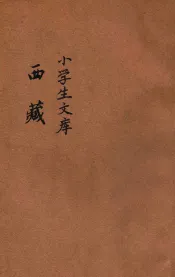 小学生文库
西藏